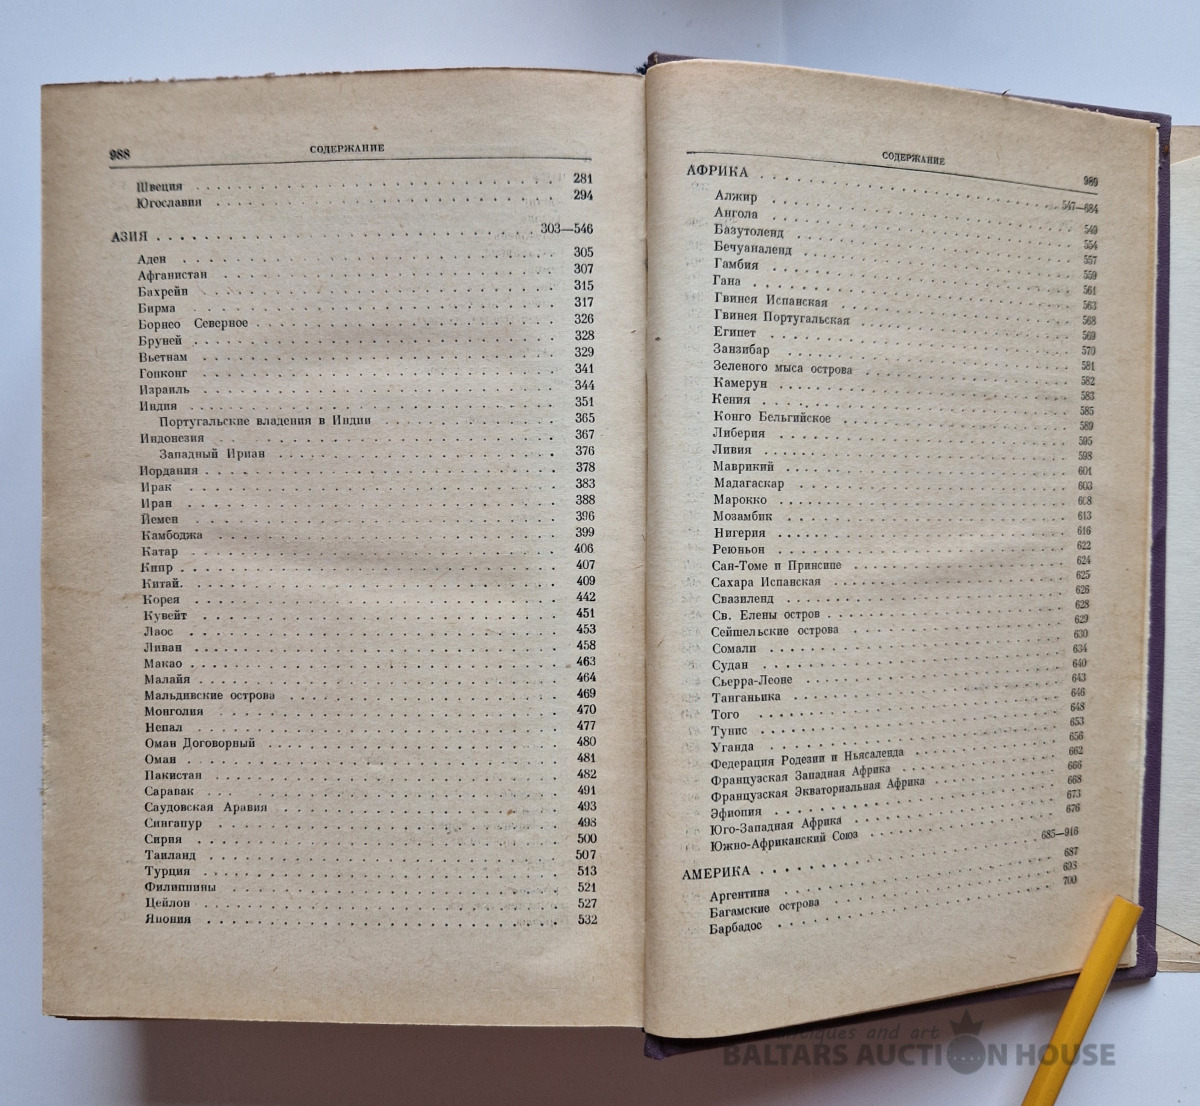 988
СОДЕРЖАНИЕ
Швеция 281
Югославия 294
АЗИЯ 303—546
Аден 305
Афганистан 307
Бахрейн 315
Бирма 317
Борнео Северное 326
Бруней 328
Вьетнам 329
Гонконг 341
Израиль 344
Индия 351
Португальские владения в Индии 365
Индонезия 367
Западный Ириан 376
Иордания 378
Ирак 383
Иран 388
Йемен 396
Камбоджа 399
Катар 406
Кипр 407
Китай. 409
Корея 442
Кувейт 451
Лаос 453
Ливан 458
Макао 463
Малайя 464
Мальдивские острова 469
Монголия 470
Непал 477
Оман Договорный 480
Оман 481
Пакистан 482
Саравак 491
Саудовская Аравия 493
Сингапур 498
Сирия 500
Таиланд 507
Турция 513
Филиппины 521
Цейлон 527
Япония 532
СОДЕРЖАНИЕ
989
АФРИКА 547—684
Алжир 549
Ангола 554
Базутоленд 557
Бечуаналенд 559
Гамбия 561
Гана 563
Гвинея Испанская 568
Гвинея Португальская 569
Египет 570
Занзибар 581
Зеленого мыса острова 582
Камерун 583
Кения 585
Конго Бельгийское 589
Либерия 595
Ливия 598
Маврикий 601
Мадагаскар 603
Марокко 608
Мозамбик 613
Нигерия 616
Реюньон 622
Сан-Томе и Принсипе 624
Сахара Испанская 625
Свазиленд 626
Св. Елены остров 628
Сейшельские острова 629
Сомали 630
Судан 634
Сьерра-Леоне 640
Танганьика 643
Того 646
Тунис 648
Уганда 653
Федерация Родезии и Ньясаленда 656
Французская Западная Африка 662
Французская Экваториальная Африка 666
Эфиопия 668
Юго-Западная Африка 673
Южно-Африканский Союз 676
АМЕРИКА 685—916
Аргентина 687
Багамские острова 693
Барбадос 700
antiques and art
BALTARS AUCTION HOUSE